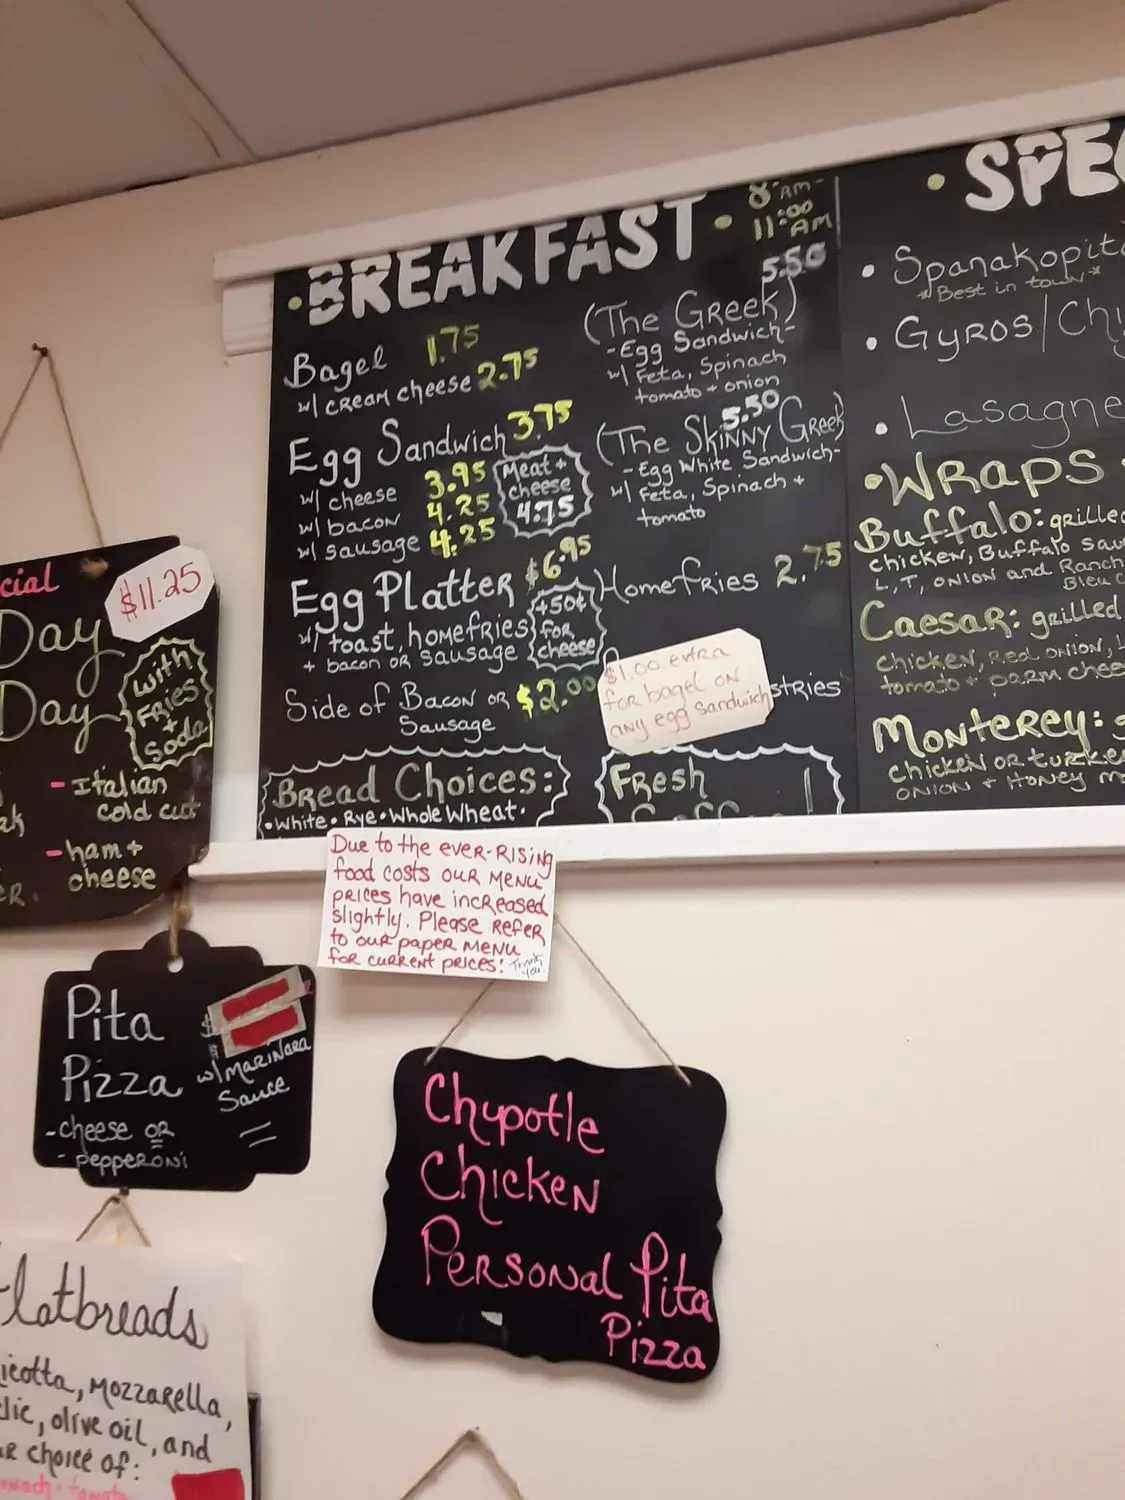 BREAKFAST
8 AM-
11:00 AM
Bagel 1.75
w/ cream cheese 2.75
Egg Sandwich 3.75
w/ cheese 3.95
w/ bacon 4.25
w/ sausage 4.25
Meat +
cheese
4.75
Egg Platter $6.95
w/ toast, homefries
+ bacon or sausage
+50¢
for
cheese
Side of Bacon or $2.00
Sausage
Bread Choices:
• White • Rye • Whole Wheat •
5.50
(The Greek)
-Egg Sandwich-
w/ Feta, Spinach
tomato + onion
5.50
(The Skinny Greek)
-Egg White Sandwich-
w/ Feta, Spinach +
tomato
Homefries 2.75
$1.00 extra
for bagel on
any egg sandwich
stries
Fresh
• SPE
• Spanakopita
*Best in town*
• Gyros/Chi
• Lasagne
• Wraps •
Buffalo: grilled
chicken, Buffalo sau
L, T, onion and Ranch
Bleu C
Caesar: grilled
chicken, Red onion, L
tomato + parm chee
Monterey: g
chicken or turkey
onion + Honey m
cial
$11.25
Day
Day
With
Fries
+
Soda
- Italian
cold cut
- ham +
cheese
Due to the ever-rising
food costs our menu
prices have increased
slightly. Please refer
to our paper menu
for current prices!
Thank
you.
Pita
Pizza
w/ Marinara
Sauce
- cheese or
- pepperoni
Chypotle
Chicken
Personal Pita
Pizza
Flatbreads
icotta, mozzarella,
lic, olive oil, and
r choice of: